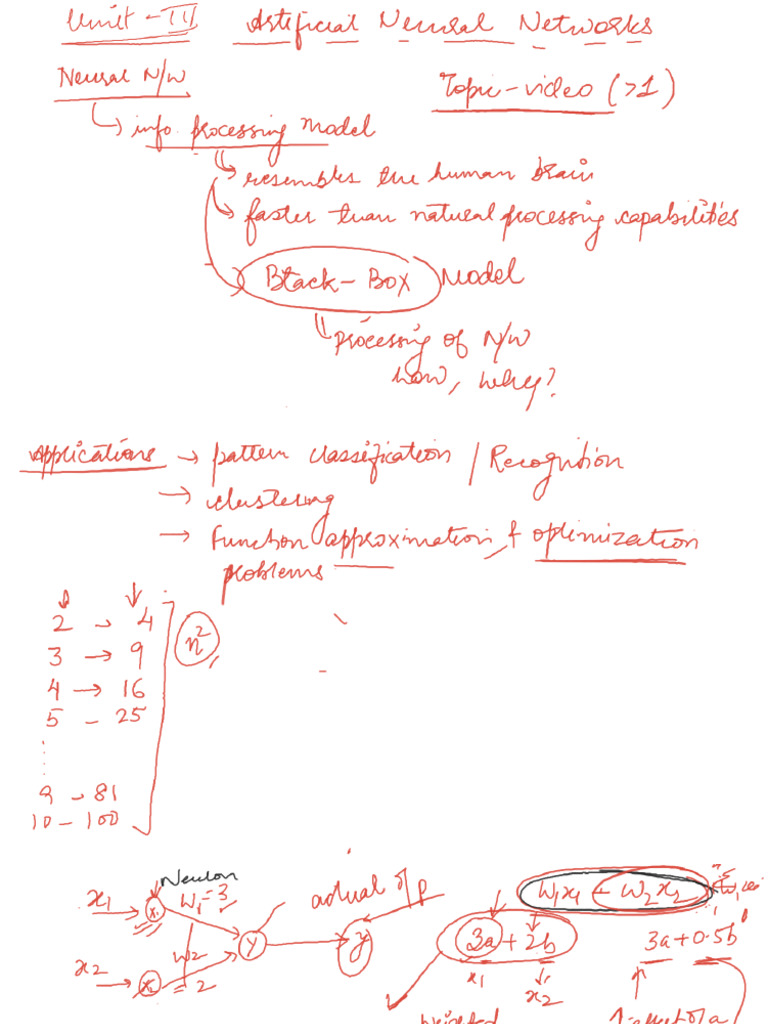 Unit - III Artificial Neural Networks
Neural N/W
Topic - video (>1)
↳ info. processing Model
↳ resembles the human brain
↳ faster than natural processing capabilities
Black - Box Model
↳ processing of N/W
how, why?
Applications → pattern classification / Recognition
→ clustering
→ Function approximation & optimization
problems
2 → 4
3 → 9
4 → 16
5 - 25
n²
9 → 81
10 - 100
Neuron
x₁ → x₁ W₁ = 3
actual o/p
W₁x₁ + W₂x₂
y → y
3a + 2b
3a + 0.5b
x₂ → x₂ W₂ = 2
x₁ x₂
weighted